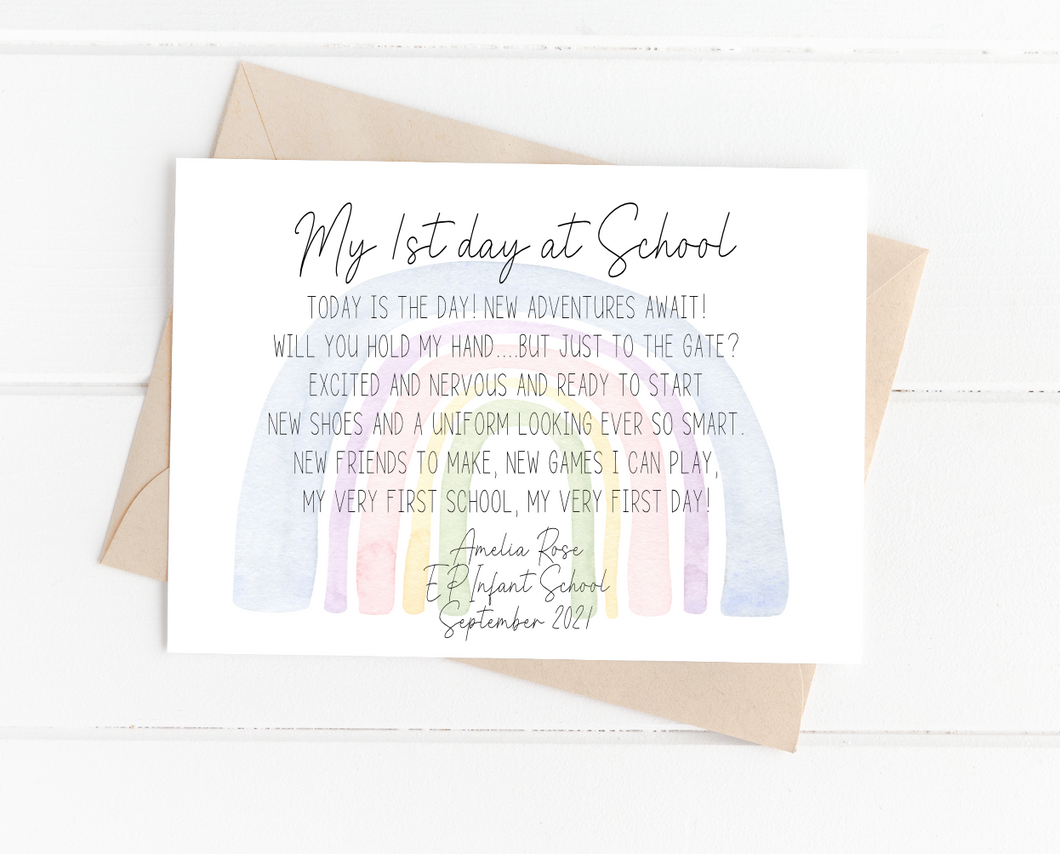 My 1st day at School
TODAY IS THE DAY! NEW ADVENTURES AWAIT!
WILL YOU HOLD MY HAND....BUT JUST TO THE GATE?
EXCITED AND NERVOUS AND READY TO START
NEW SHOES AND A UNIFORM LOOKING EVER SO SMART.
NEW FRIENDS TO MAKE, NEW GAMES I CAN PLAY,
MY VERY FIRST SCHOOL, MY VERY FIRST DAY!
Amelia Rose
E P Infant School
September 2021